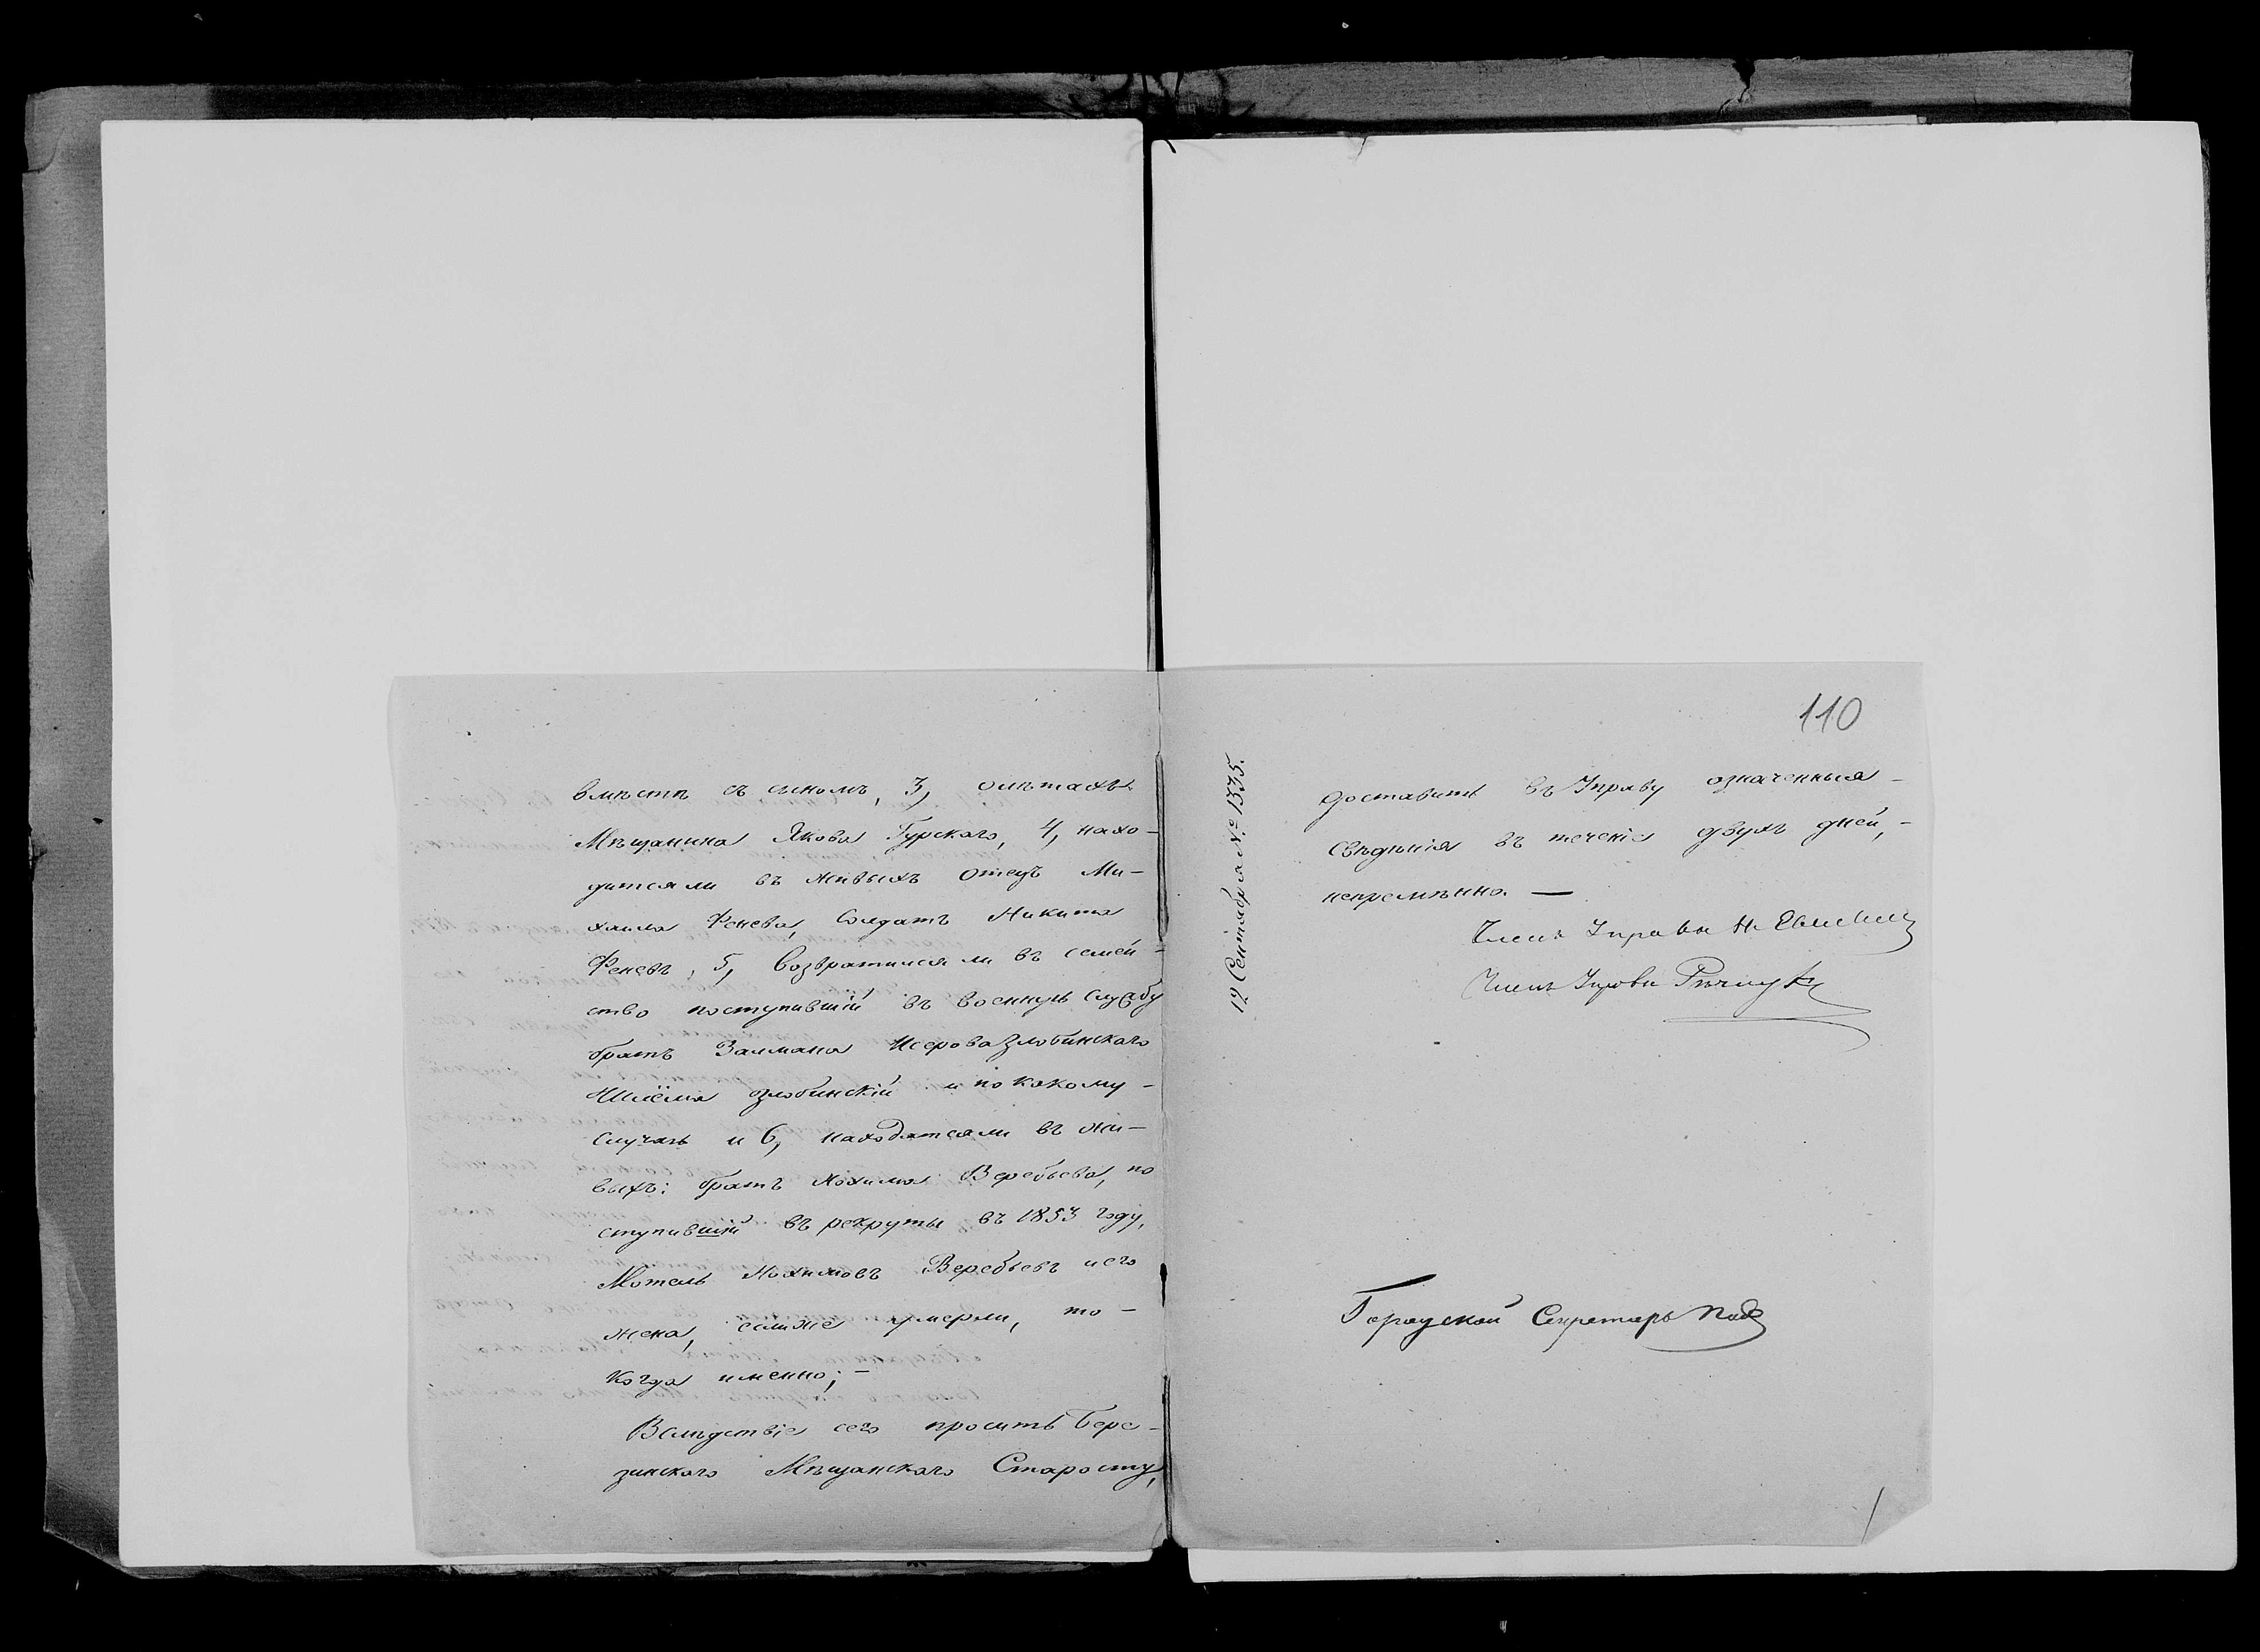 вмѣстѣ съ сыномъ, 3, олѣтахъ
Мѣщанина Якова Гурскаго, 4, нахо-
дится ли въ живыхъ отецъ Ми-
хаила Фенева, Солдатъ Никита
Феневъ, 5, Возвратился ли въ семей-
ство поступившій въ военную службу
братъ Залмана Исерова Злобинскаго
Шлёма Злобинскій и по какому-
случаю и 6, находятся ли въ жи-
выхъ: братъ Нохима Веребьева, по
ступившій въ рекруты въ 1853 году,
Мотель Нохимовъ Веребьевъ и его
жена, если же умерли, то-
когда именно;-
Вслѣдствіе сего проситъ Бере-
зинскаго Мѣщанскаго Старосту,
110
12 Сентября № 1335.
доставить въ Управу означенныя-
свѣдѣнія въ теченіе двухъ дней,-
непремѣнно. —
Членъ Управы Н.
Членъ Управы
Городской Секретарь